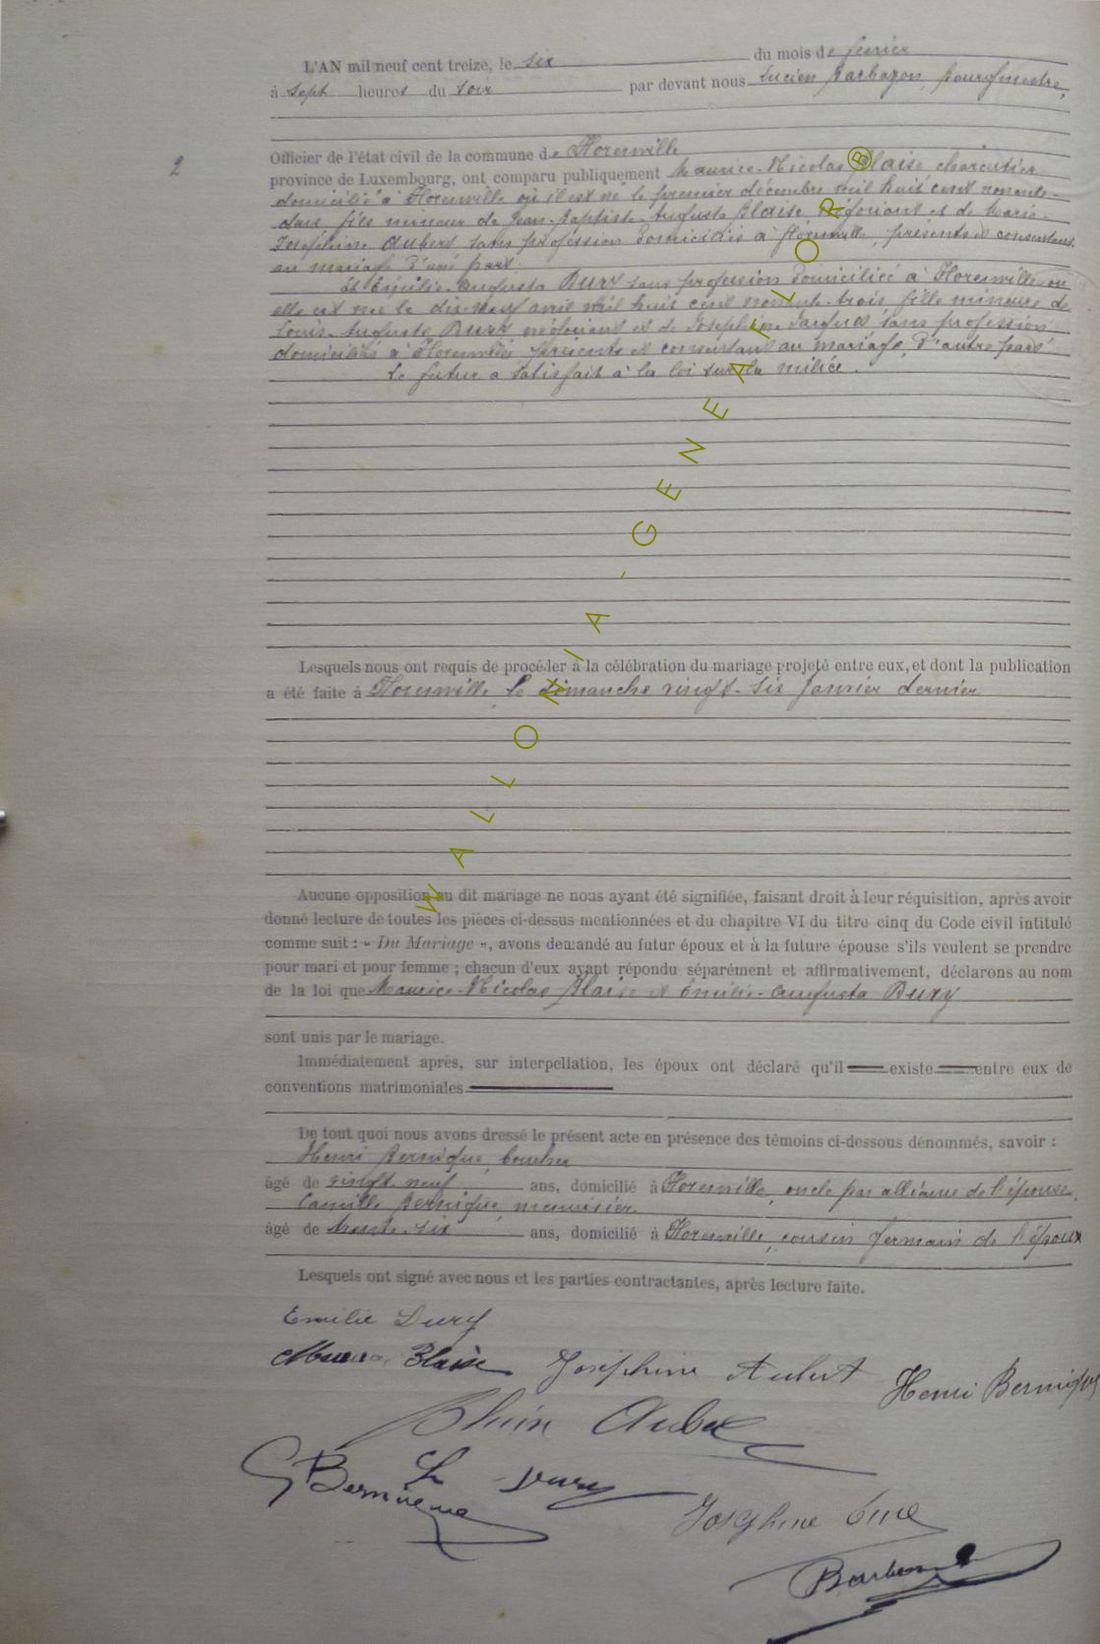 L'AN mil neuf cent treize, le six du mois de février
à sept heures du soir par devant nous Lucien Barbazon, bourgmestre,
2
Officier de l'état civil de la commune de Florenville
province de Luxembourg, ont comparu publiquement Maurice-Nicolas Blaise charcutier
domicilié à Florenville où il est né le premier décembre mil huit cent nonante-
deux fils mineur de Jean-Baptiste-Auguste Blaise négociant et de Marie-
Joséphine Aubert sans profession domiciliés à Florenville, présents et consentant
au mariage d'une part.
Et Emilie-Augusta Bury sans profession domiciliée à Florenville où
elle est née le dix neuf avril mil huit cent nonante-trois fille mineure de
Louis-Auguste Bury négociant et de Joséphine sans profession
domiciliés à Florenville, présents et consentant au mariage, d'autre part.
Le futur a satisfait à la loi sur la milice.
Lesquels nous ont requis de procéder à la célébration du mariage projeté entre eux, et dont la publication
a été faite à Florenville, le dimanche vingt-six janvier dernier
Aucune opposition au dit mariage ne nous ayant été signifiée, faisant droit à leur réquisition, après avoir
donné lecture de toutes les pièces ci-dessus mentionnées et du chapitre VI du titre cinq du Code civil intitulé
comme suit : « Du Mariage », avons demandé au futur époux et à la future épouse s'ils veulent se prendre
pour mari et pour femme ; chacun d'eux ayant répondu séparément et affirmativement, déclarons au nom
de la loi que Maurice-Nicolas Blaise et Emilie-Augusta Bury
sont unis par le mariage.
Immédiatement après, sur interpellation, les époux ont déclaré qu'il existe entre eux de
conventions matrimoniales
De tout quoi nous avons dressé le présent acte en présence des témoins ci-dessous dénommés, savoir :
Henri Bernique,
âgé de vingt neuf ans, domicilié à Florenville, oncle par alliance de l'épouse,
Camille Bernique, menuisier
âgé de trente-six ans, domicilié à Florenville, cousin germain de l'époux
Lesquels ont signé avec nous et les parties contractantes, après lecture faite.
Emilie Bury
Blaise Joséphine Aubert Henri Bernique
Bernique Bury
Joséphine
WALLONIA-GENEAFLOR®